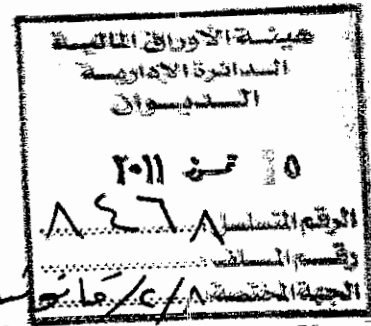 هيئة الاوراق المالية
الدائرة الادارية
الديوان
تموز ٢٠١١
الرقم المتسلسل ٨٤٦٨
رقم الملف
الجهة المختصة